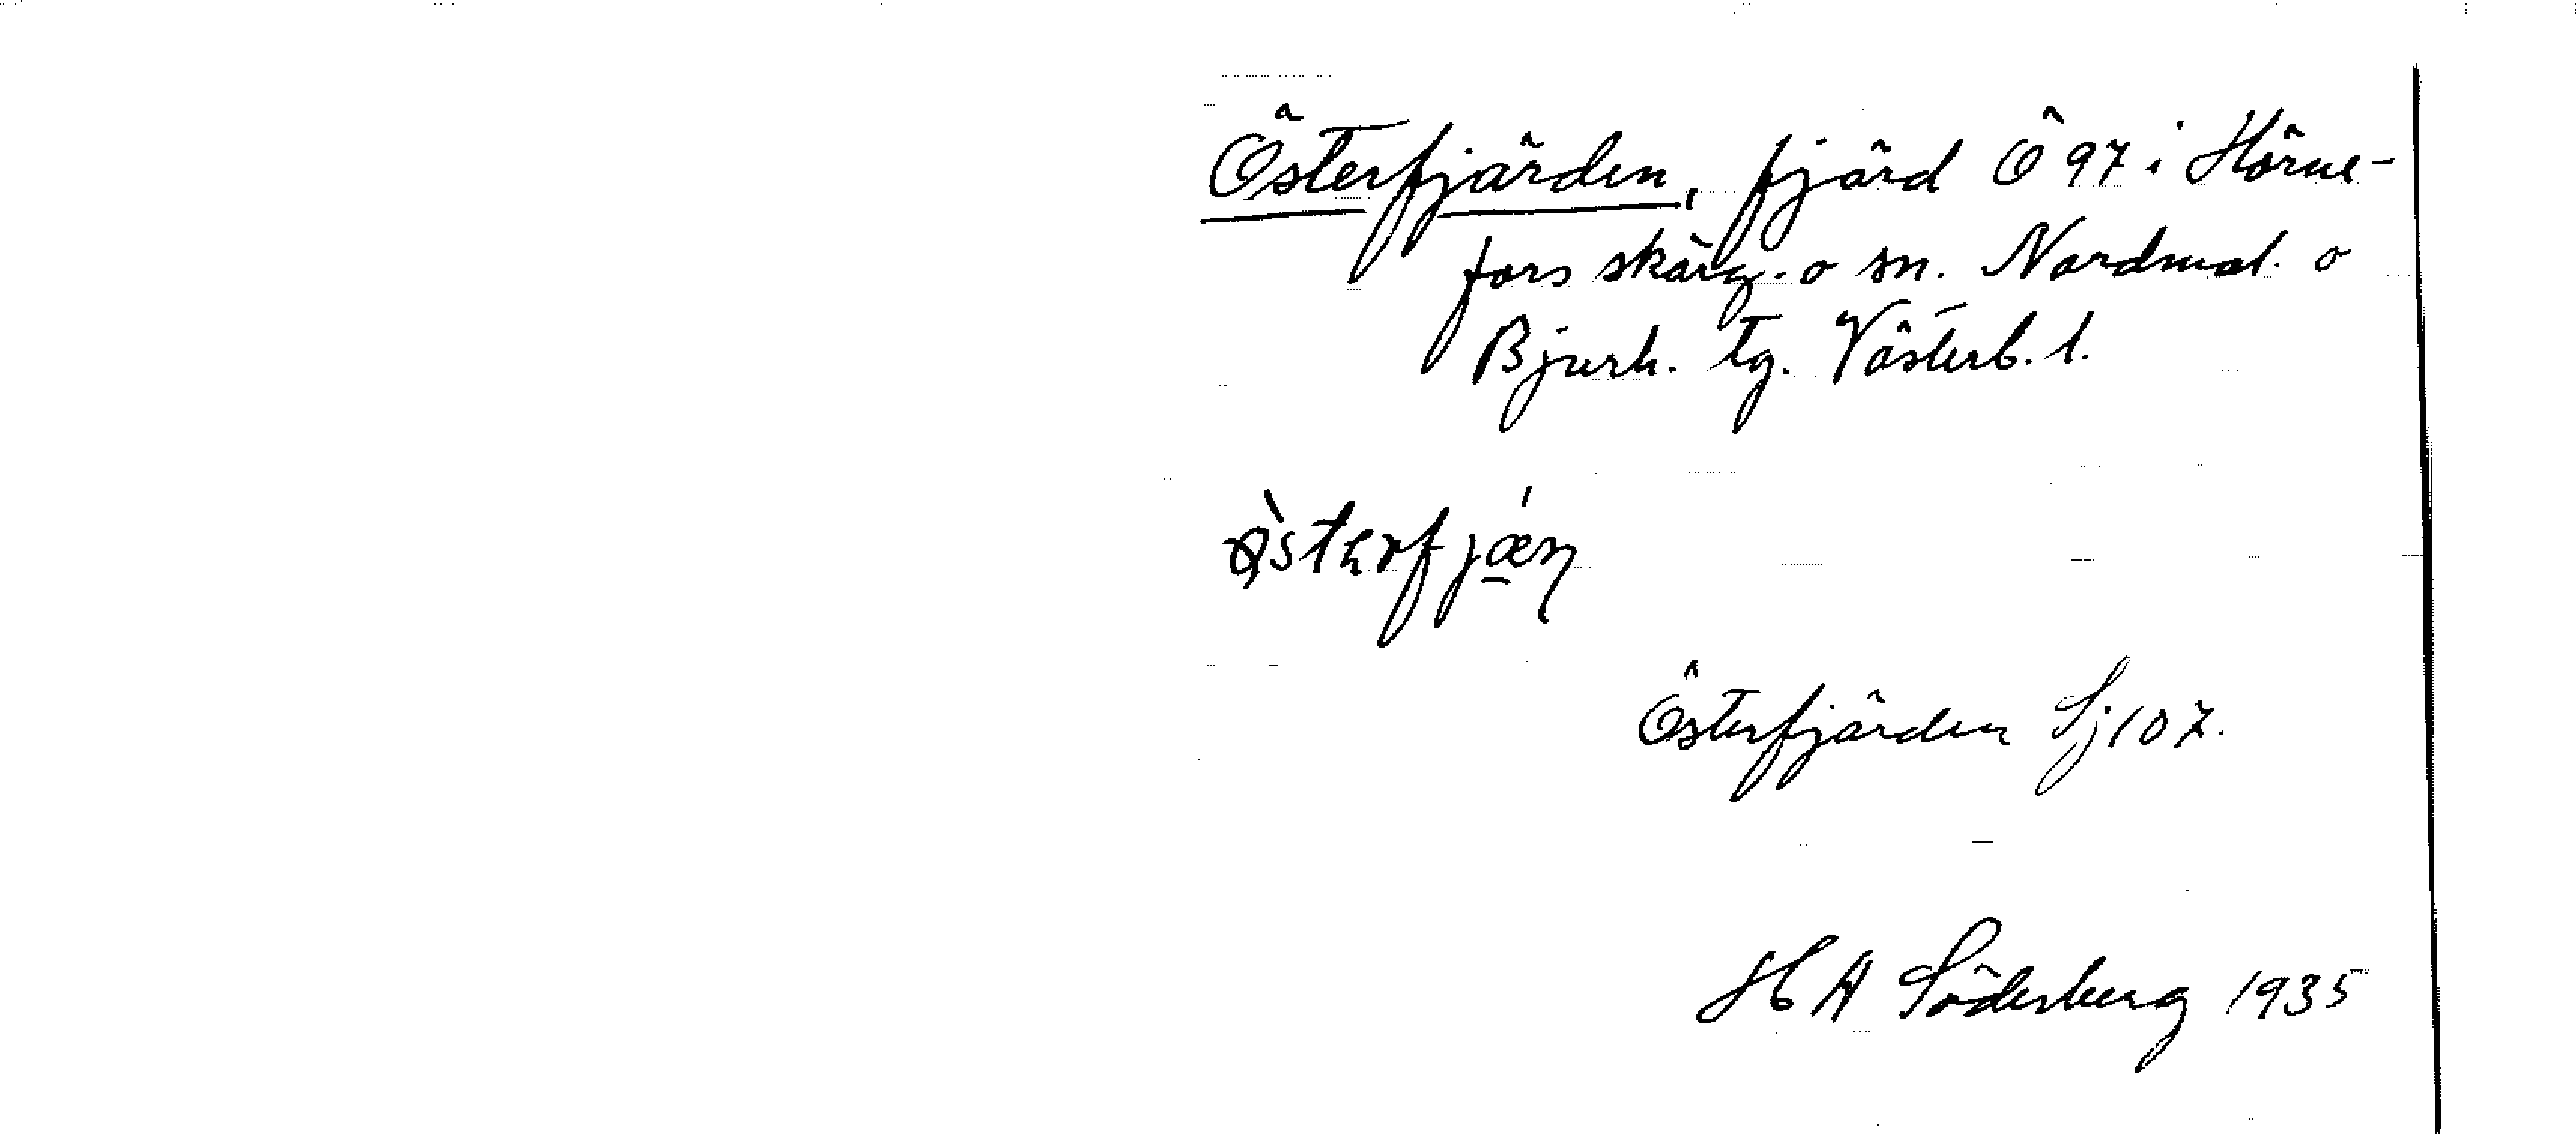 Österfjärden, fjärd Ö 97 i Hörne-
fors skärg. o sn. Nordmal. o
Bjurh. tg. Västerb. l.
Österfjärden Sj 107.
H A Söderberg 1935